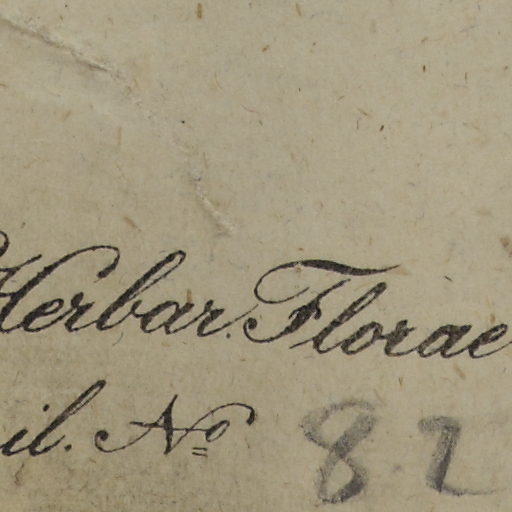 Herbar. Florae
il. No 82